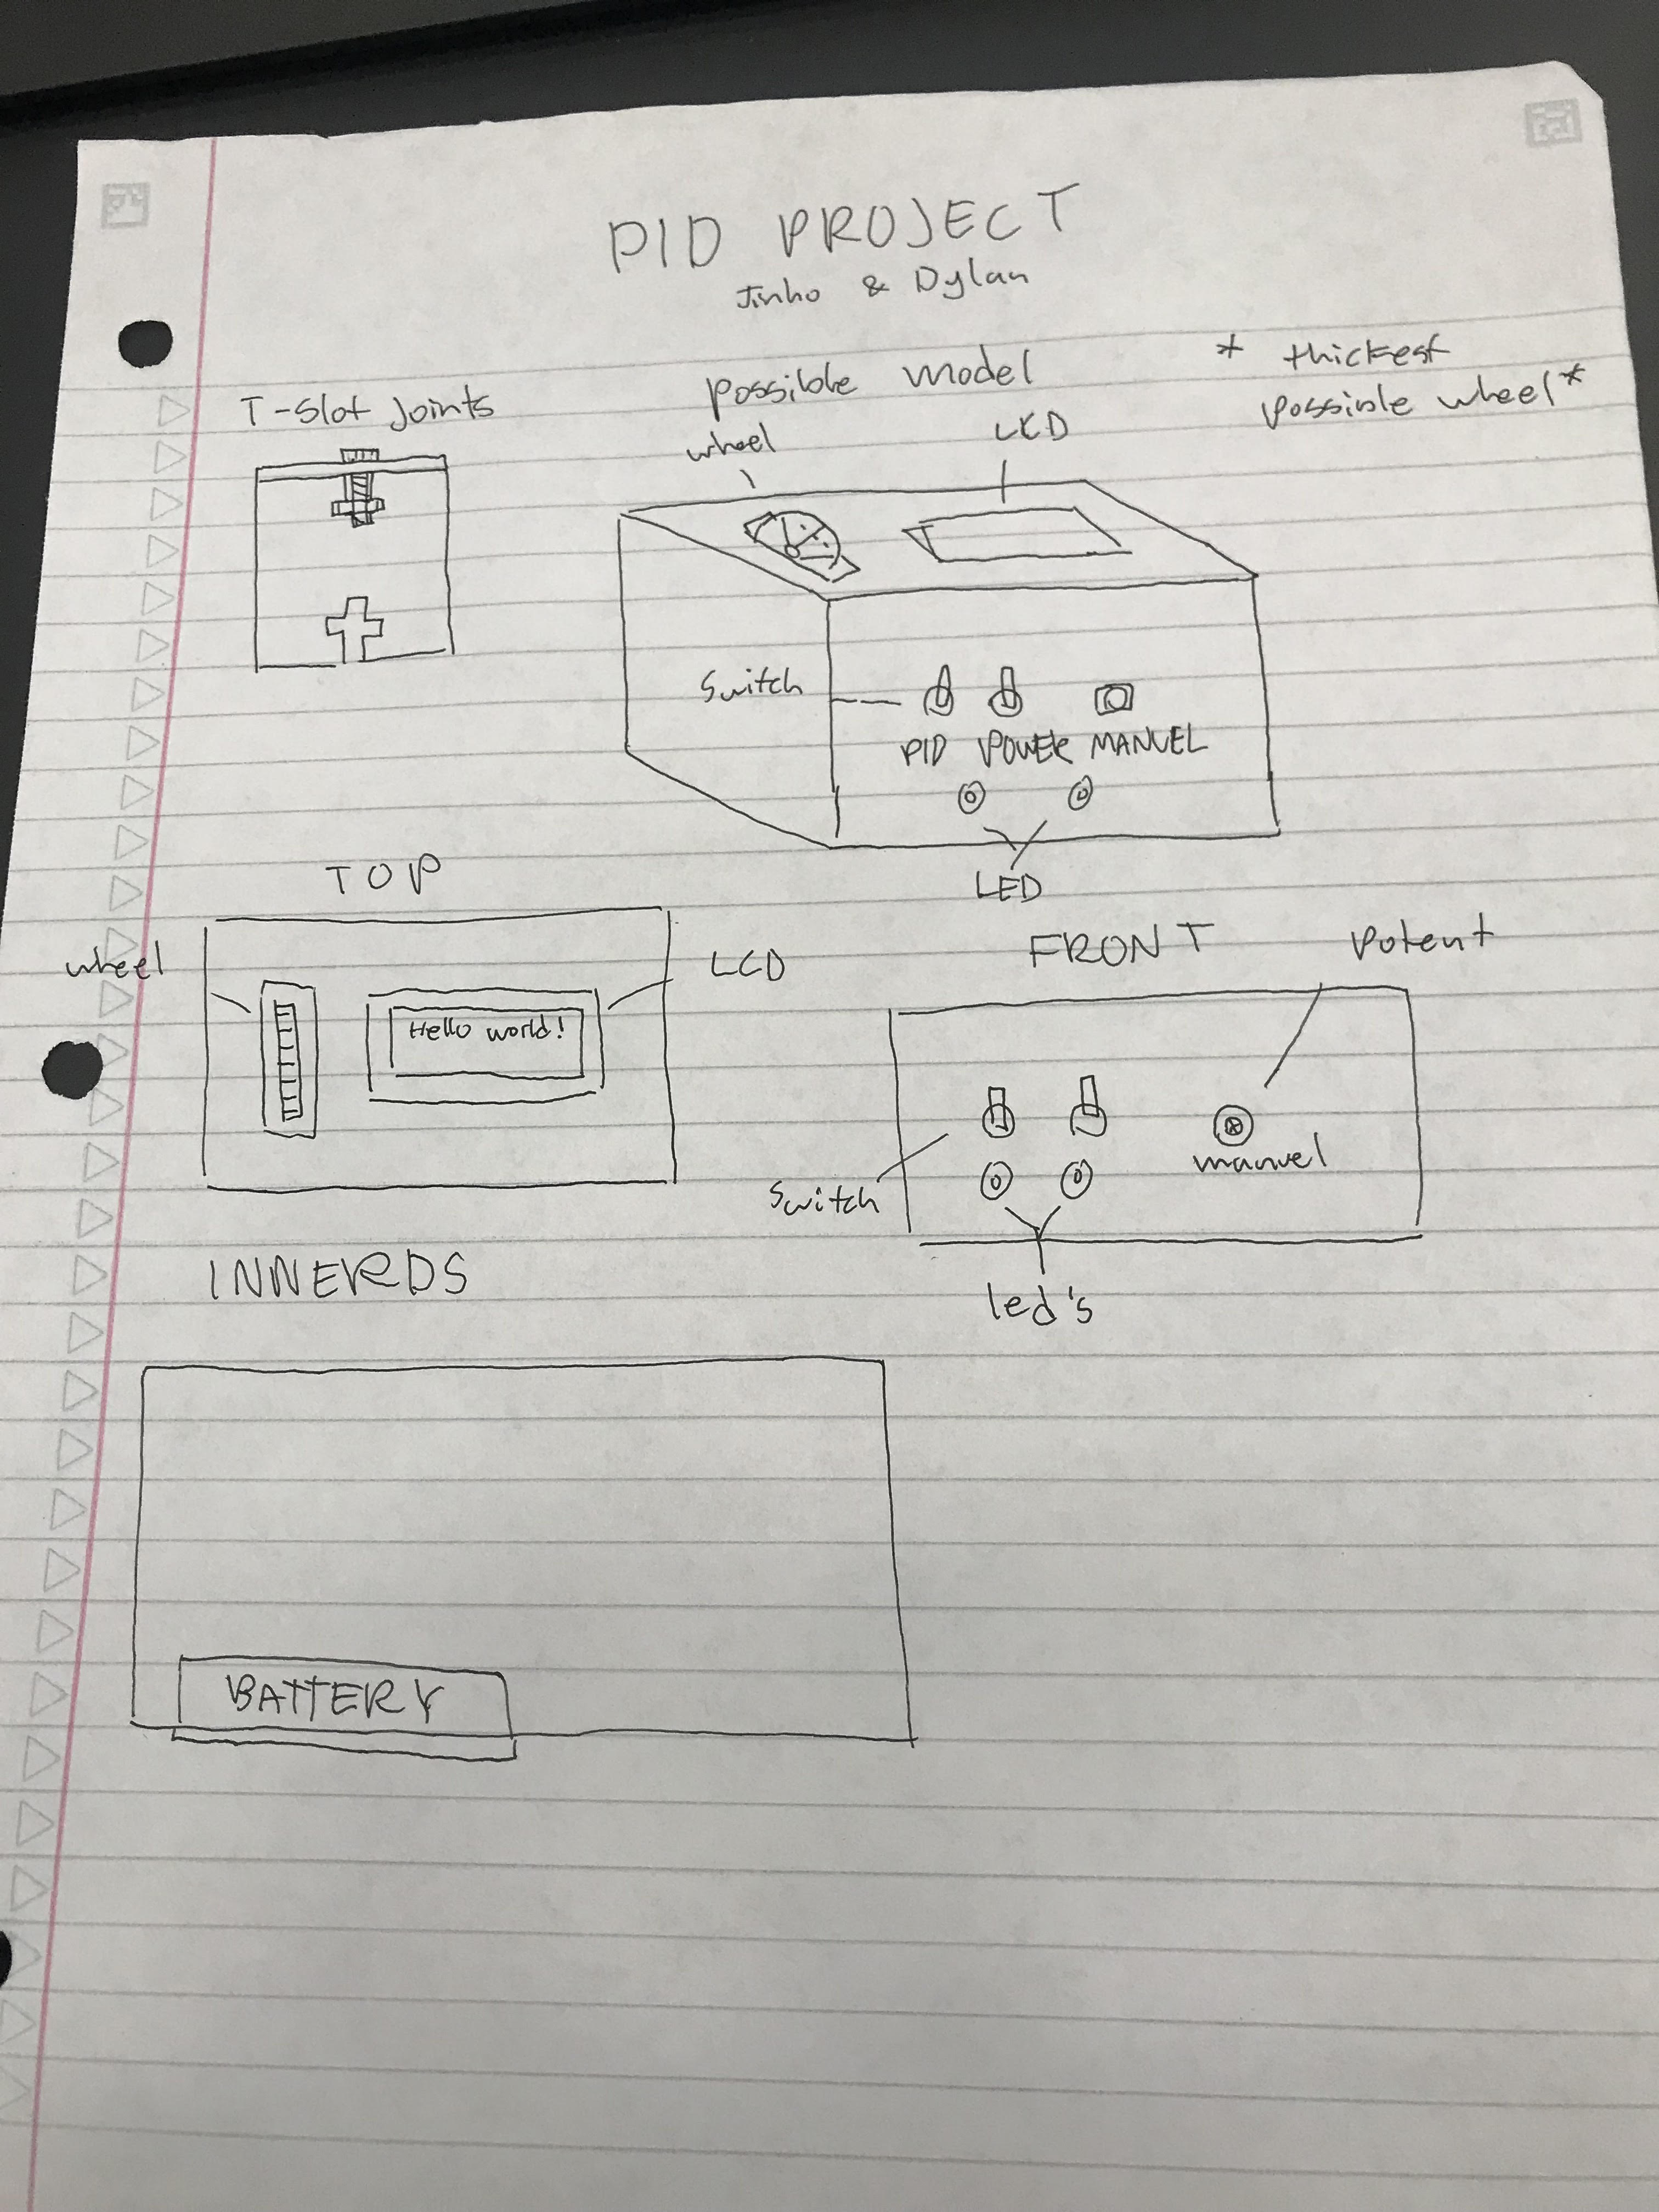 PID PROJECT
Jinho & Dylan
T-Slot Joints
possible model
* thickest
possible wheel*
wheel
LCD
Switch
PID POWER MANUEL
LED
TOP
wheel
LCD
Hello world!
FRONT
Potent
manuel
Switch
led's
INNERDS
BATTERY